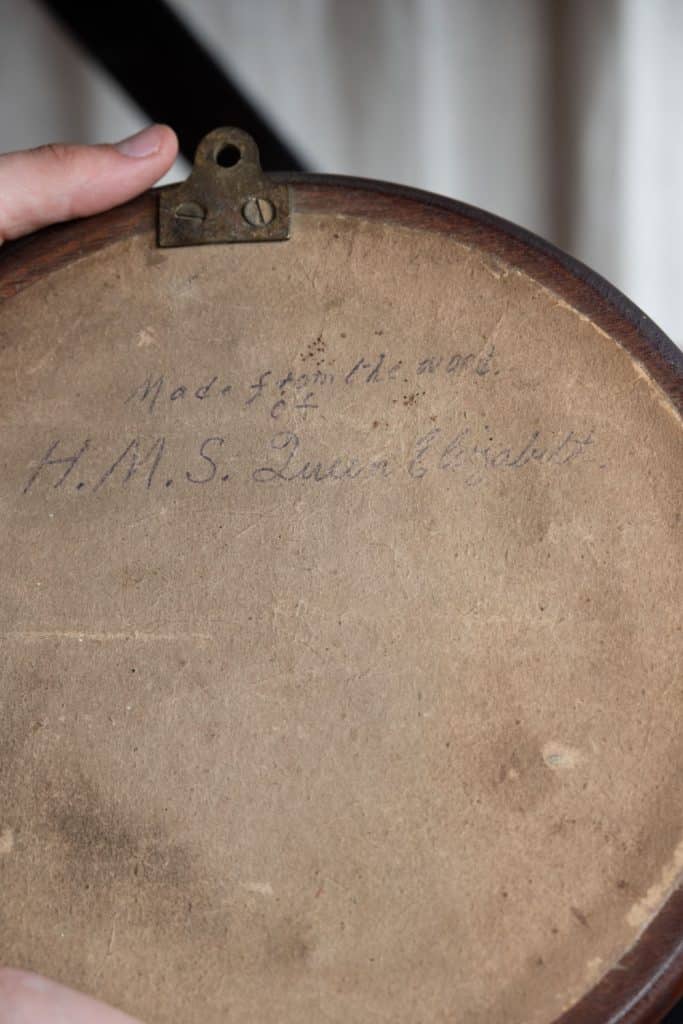 Made from the wood.
of
H.M.S. Queen Elizabeth.